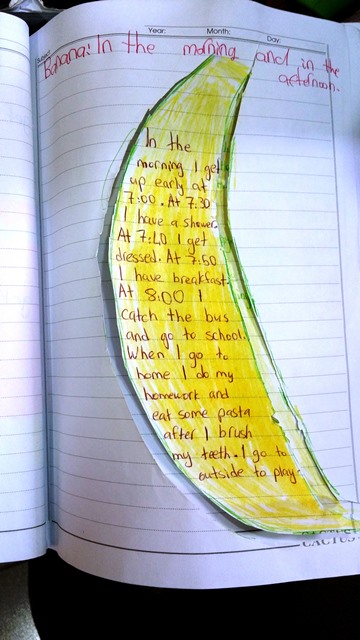 Year: Month: Day:
Banana: In the morning and in the
afternoon.
In the
morning I get
up early at
7:00. At 7:30
I have a shower.
At 7:40 I get
dressed. At 7:50
I have breakfast.
At 8:00 I
catch the bus
and go to school.
When I go to
home I do my
homework and
eat some pasta
after I brush
my teeth. I go to
outside to play.
CACTUS